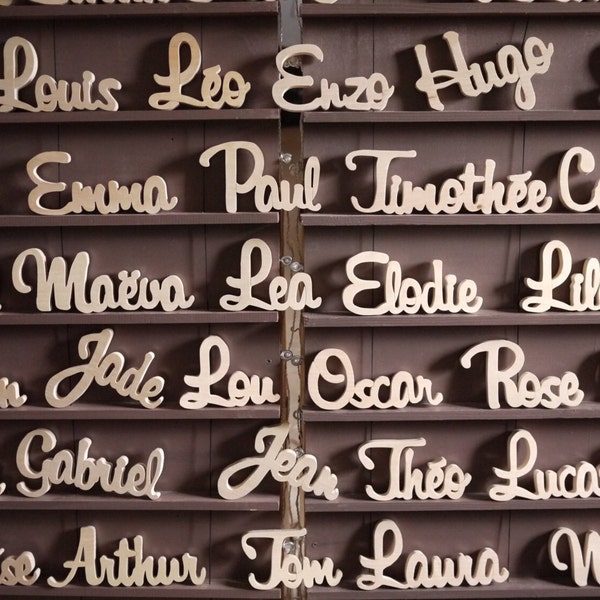 Louis Léo Enzo Hugo
Emma Paul Timothée
Maëva Léa Elodie
Jade Lou Oscar Rose
Gabriel Jean Théo Lucas
Arthur Tom Laura